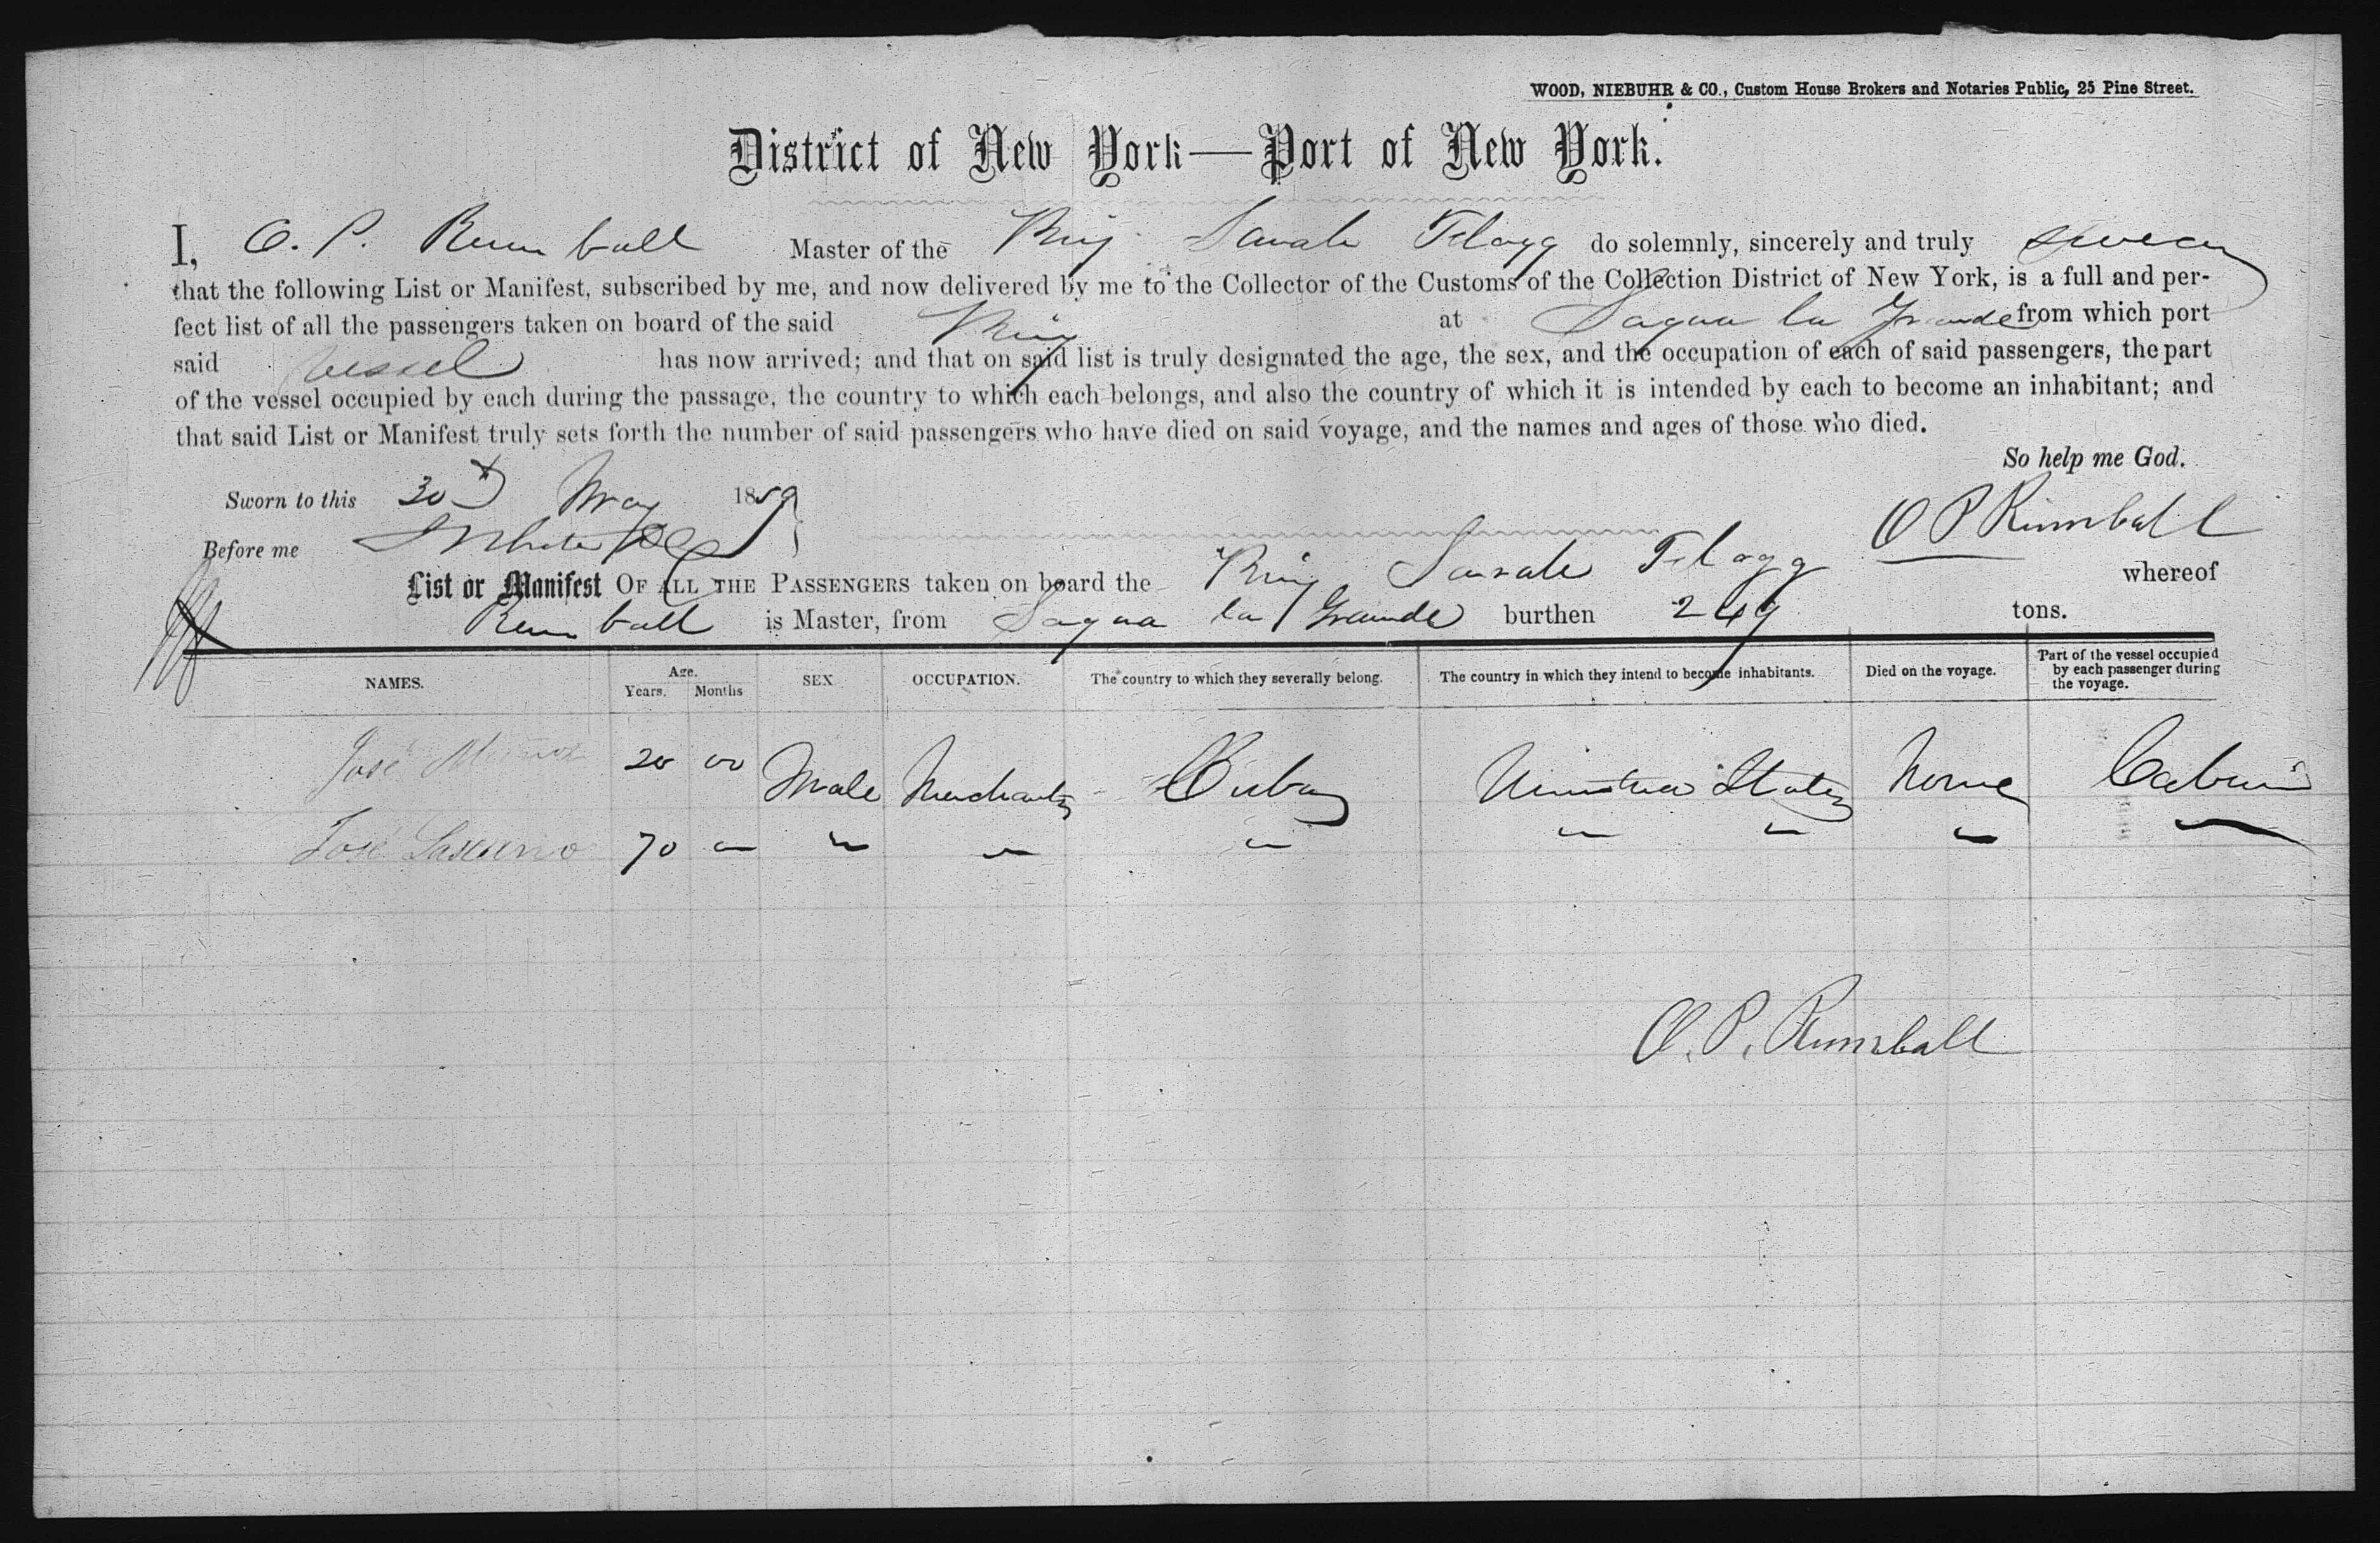 WOOD, NIEBUHR & CO., Custom House Brokers and Notaries Public, 25 Pine Street.
District of New York—Port of New York.
I, O. P. Rumball Master of the Brig Sarah Flagg do solemnly, sincerely and truly swear
that the following List or Manifest, subscribed by me, and now delivered by me to the Collector of the Customs of the Collection District of New York, is a full and per-
fect list of all the passengers taken on board of the said Brig at Sagua la Grande from which port
said vessel has now arrived; and that on said list is truly designated the age, the sex, and the occupation of each of said passengers, the part
of the vessel occupied by each during the passage, the country to which each belongs, and also the country of which it is intended by each to become an inhabitant; and
that said List or Manifest truly sets forth the number of said passengers who have died on said voyage, and the names and ages of those who died.
So help me God.
Sworn to this 30th May 1859
O P Rumball
Before me
List or Manifest OF ALL THE PASSENGERS taken on board the Brig Sarah Flagg whereof
Rumball is Master, from Sagua la Grande burthen 249 tons.
NAMES. Age. Years. Months SEX OCCUPATION. The country to which they severally belong. The country in which they intend to become inhabitants. Died on the voyage. Part of the vessel occupied by each passenger during the voyage.
José 20 00 Male Merchants Cuba United States None Cabin
José 70 " " " " " " " "
O. P. Rumball